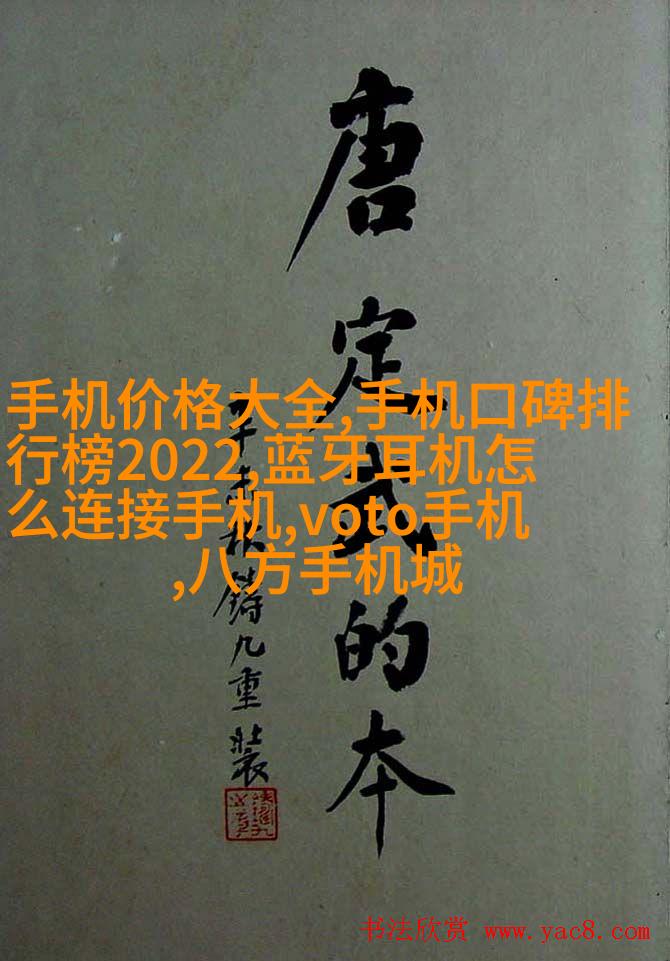 唐定武的本
鑄九重裝
手机价格大全,手机口碑排
行榜2022,蓝牙耳机怎
么连接手机,voto手机
,八方手机城
书法欣赏 www.yac8.com